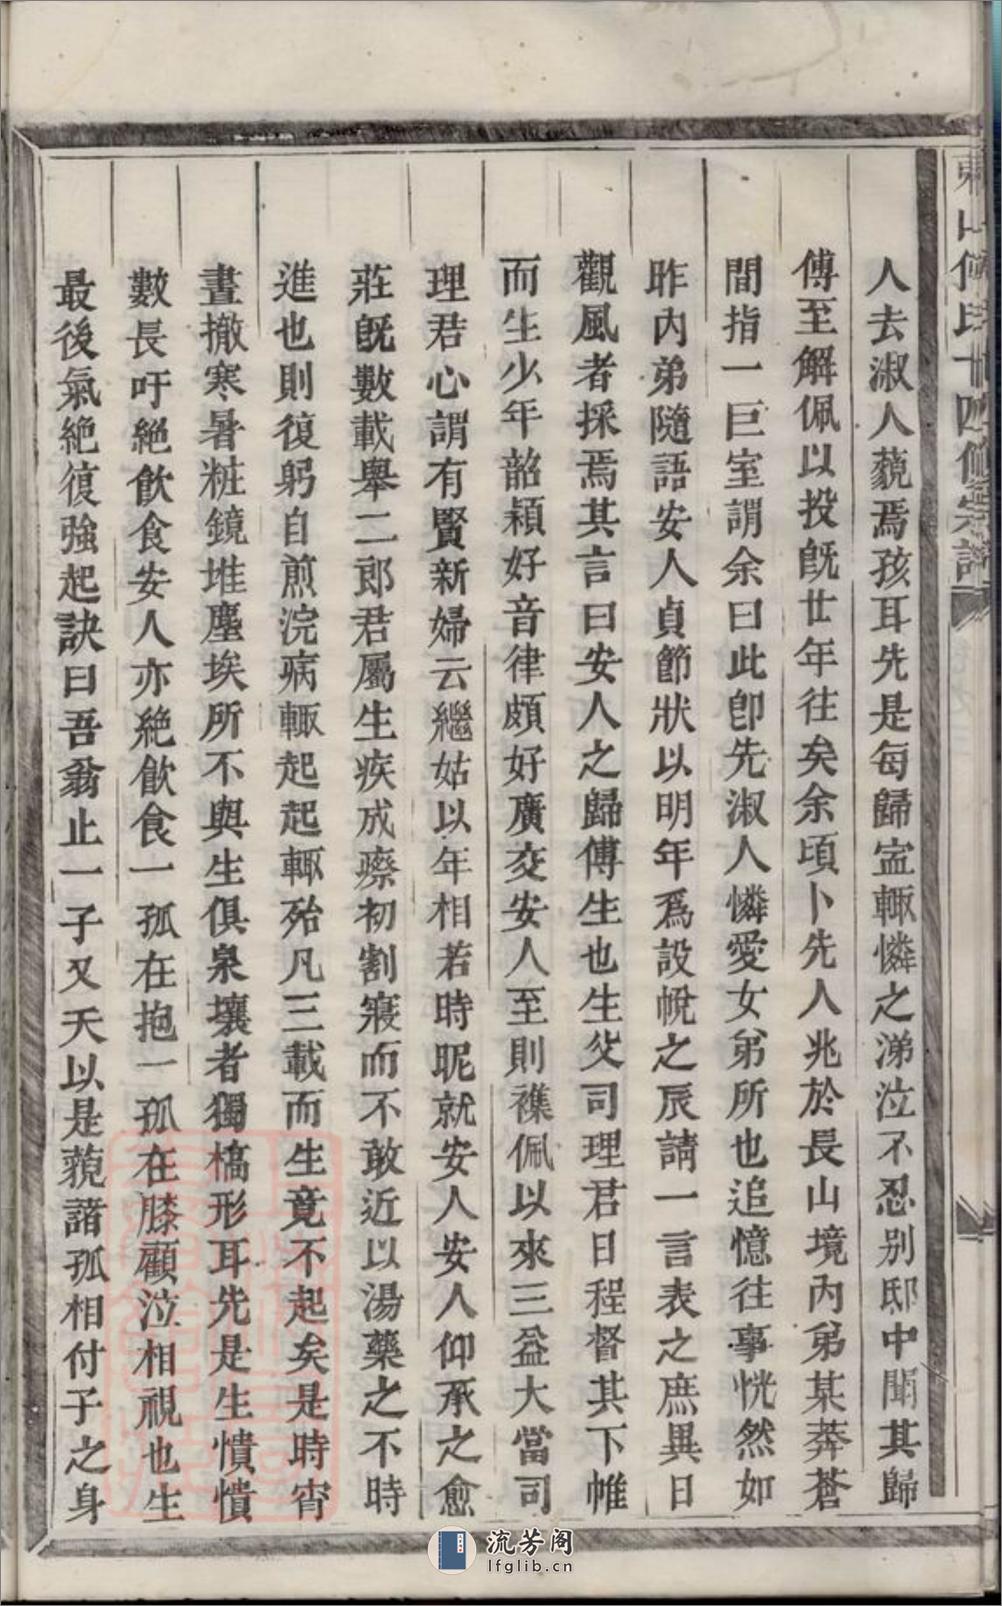 人去淑人藐焉孩耳先是每歸寍輙憐之涕泣不忍别邸中聞其歸
傅至解佩以投旣廿年往矣余頃卜先人兆於長山境內弟某莽蒼
間指一巨室謂余曰此卽先淑人憐愛女弟所也追憶往事恍然如
昨內弟隨語安人貞節狀以明年爲設帨之辰請一言表之庶異日
觀風者採焉其言曰安人之歸傅生也生父司理君日程督其下帷
而生少年韶穎好音律頗好廣交安人至則襍佩以來三益大當司
理君心謂有賢新婦云繼姑以年相若時昵就安人安人仰承之愈
莊旣數載舉二郎君屬生疾成瘵初割寢而不敢近以湯藥之不時
進也則復躬自煎浣病輙起起輙殆凡三載而生竟不起矣是時宵
晝撤寒暑粧鏡堆塵埃所不與生俱泉壤者獨槁形耳先是生憒憒
數長吁絕飲食安人亦絕飲食一孤在抱一孤在膝顧泣相視也生
最後氣絕復強起訣曰吾翁止一子又夭以是藐諸孤相付子之身
東山傅氏十四修宗譜
流芳阁
lfglib.cn